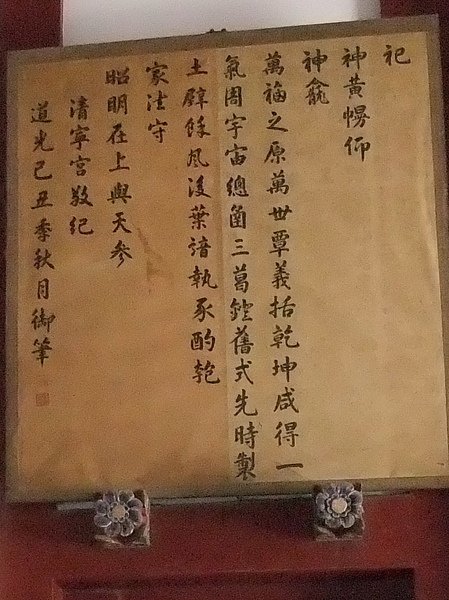 祀
神黄幌仰
神龕
萬福之原萬世覃義括乾坤咸得一
氣周宇宙總函三葛鐙舊式先時製
土壁餘風後葉諳執豕酌匏
家法守
昭明在上與天參
清寧宮敬紀
道光己丑季秋月御筆